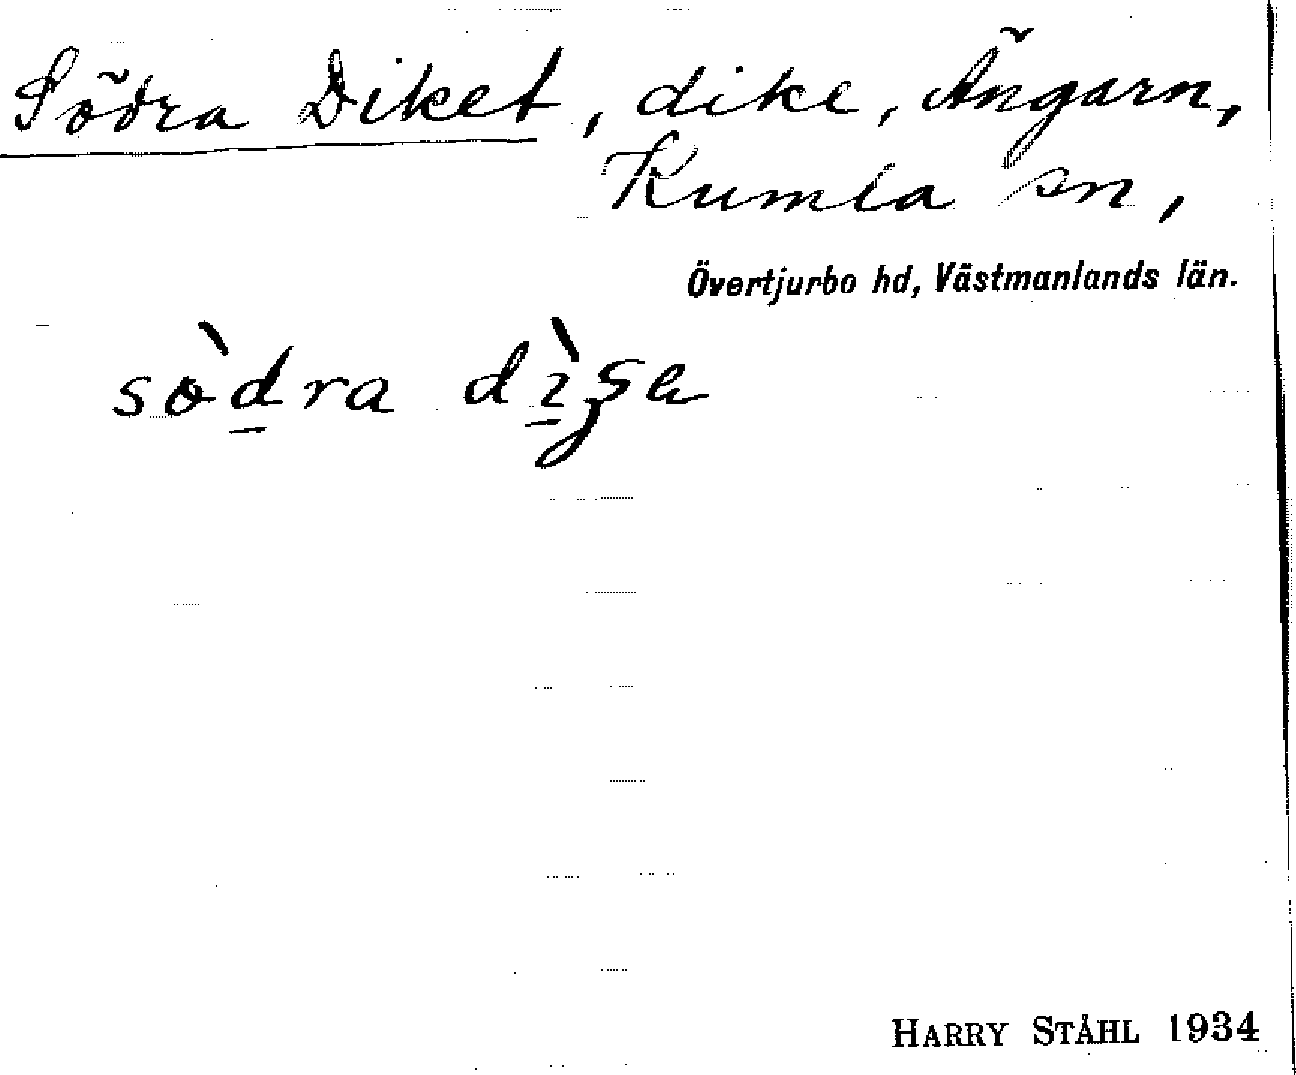 Södra Diket, dike, Ängarn,
Kumla sn,
Övertjurbo hd, Västmanlands län.
södra
HARRY STÅHL 1934